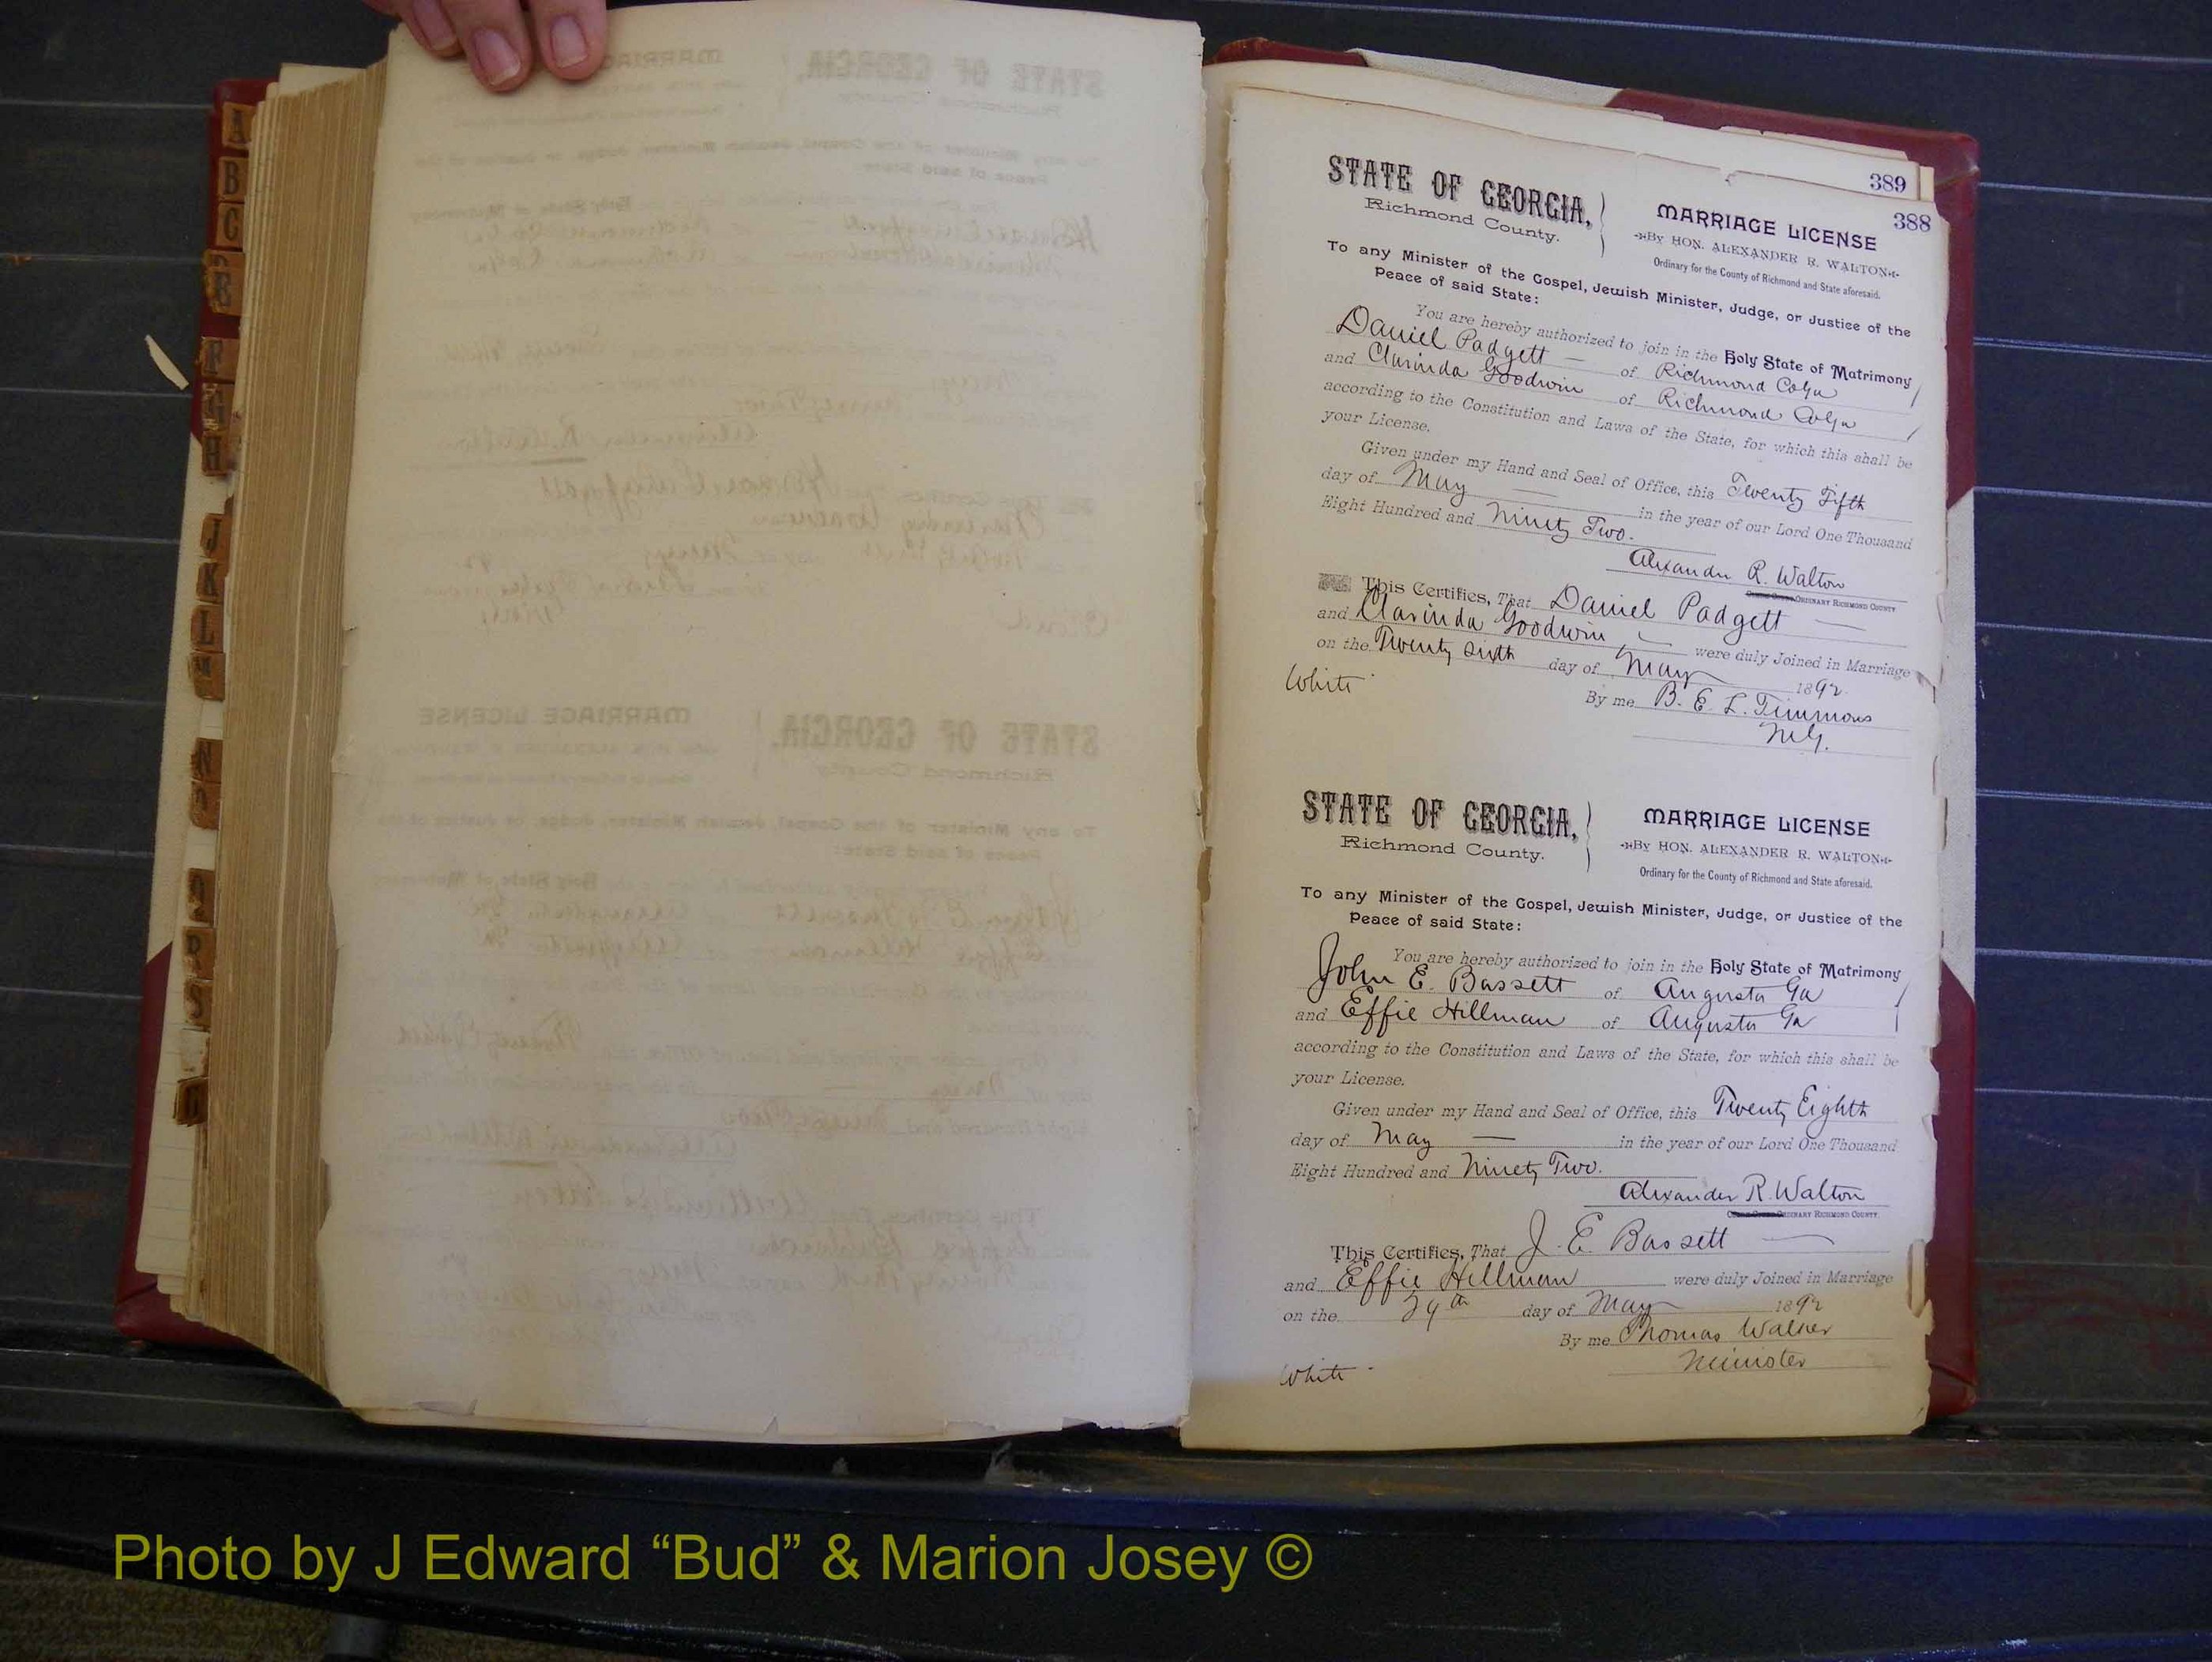 389
388
STATE OF GEORGIA,
Richmond County.
MARRIAGE LICENSE
By HON. ALEXANDER R. WALTON
Ordinary for the County of Richmond and State aforesaid.
To any Minister of the Gospel, Jewish Minister, Judge, or Justice of the
Peace of said State:
You are hereby authorized to join in the Holy State of Matrimony
Daniel Padgett — of Richmond Co Ga
and Clarinda Goodwin of Richmond Co Ga
according to the Constitution and Laws of the State, for which this shall be
your License.
Given under my Hand and Seal of Office, this Twenty Fifth
day of May — in the year of our Lord One Thousand
Eight Hundred and Ninety Two.
Alexander R. Walton
ORDINARY RICHMOND COUNTY
This Certifies, That Daniel Padgett —
and Clarinda Goodwin were duly Joined in Marriage
on the Twenty sixth day of May 1892
By me B. E. L. Timmons
M.G.
White
STATE OF GEORGIA,
Richmond County.
MARRIAGE LICENSE
By HON. ALEXANDER R. WALTON
Ordinary for the County of Richmond and State aforesaid.
To any Minister of the Gospel, Jewish Minister, Judge, or Justice of the
Peace of said State:
You are hereby authorized to join in the Holy State of Matrimony
John E. Bassett of Augusta Ga
and Effie Hillman of Augusta Ga
according to the Constitution and Laws of the State, for which this shall be
your License.
Given under my Hand and Seal of Office, this Twenty Eighth
day of May — in the year of our Lord One Thousand
Eight Hundred and Ninety Two.
Alexander R. Walton
ORDINARY RICHMOND COUNTY.
This Certifies, That J. E. Bassett —
and Effie Hillman were duly Joined in Marriage
on the 29th day of May 1892
By me Thomas Walker
Minister
White
A
B
C
E
F
G
H
J
K
L
M
N
O
Q
R
S
Photo by J Edward “Bud” & Marion Josey ©